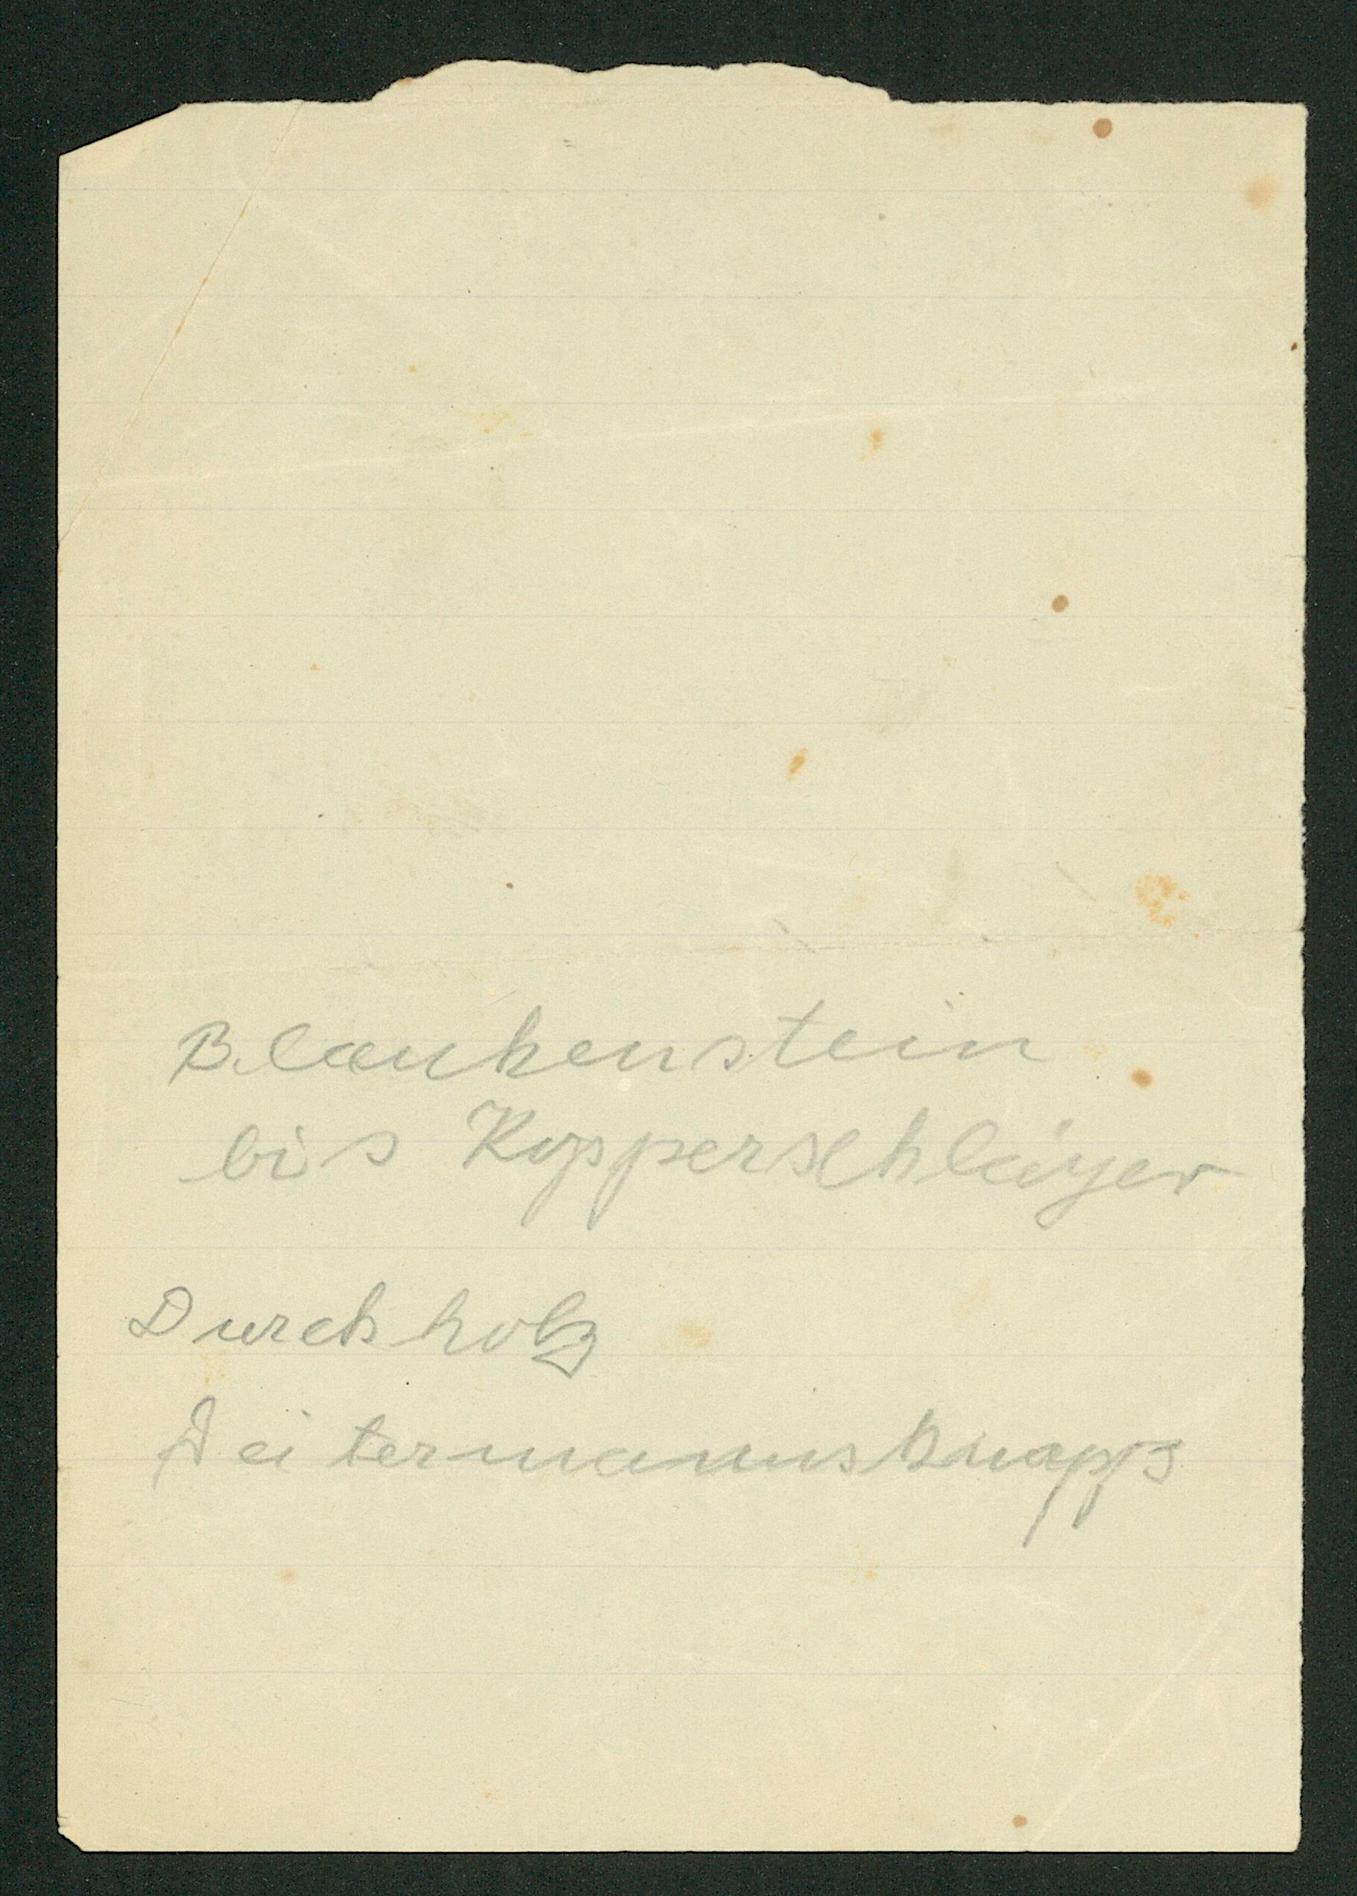 Blankenstein
bis Kopperschläger
Durchholz
Deitermannsknapp